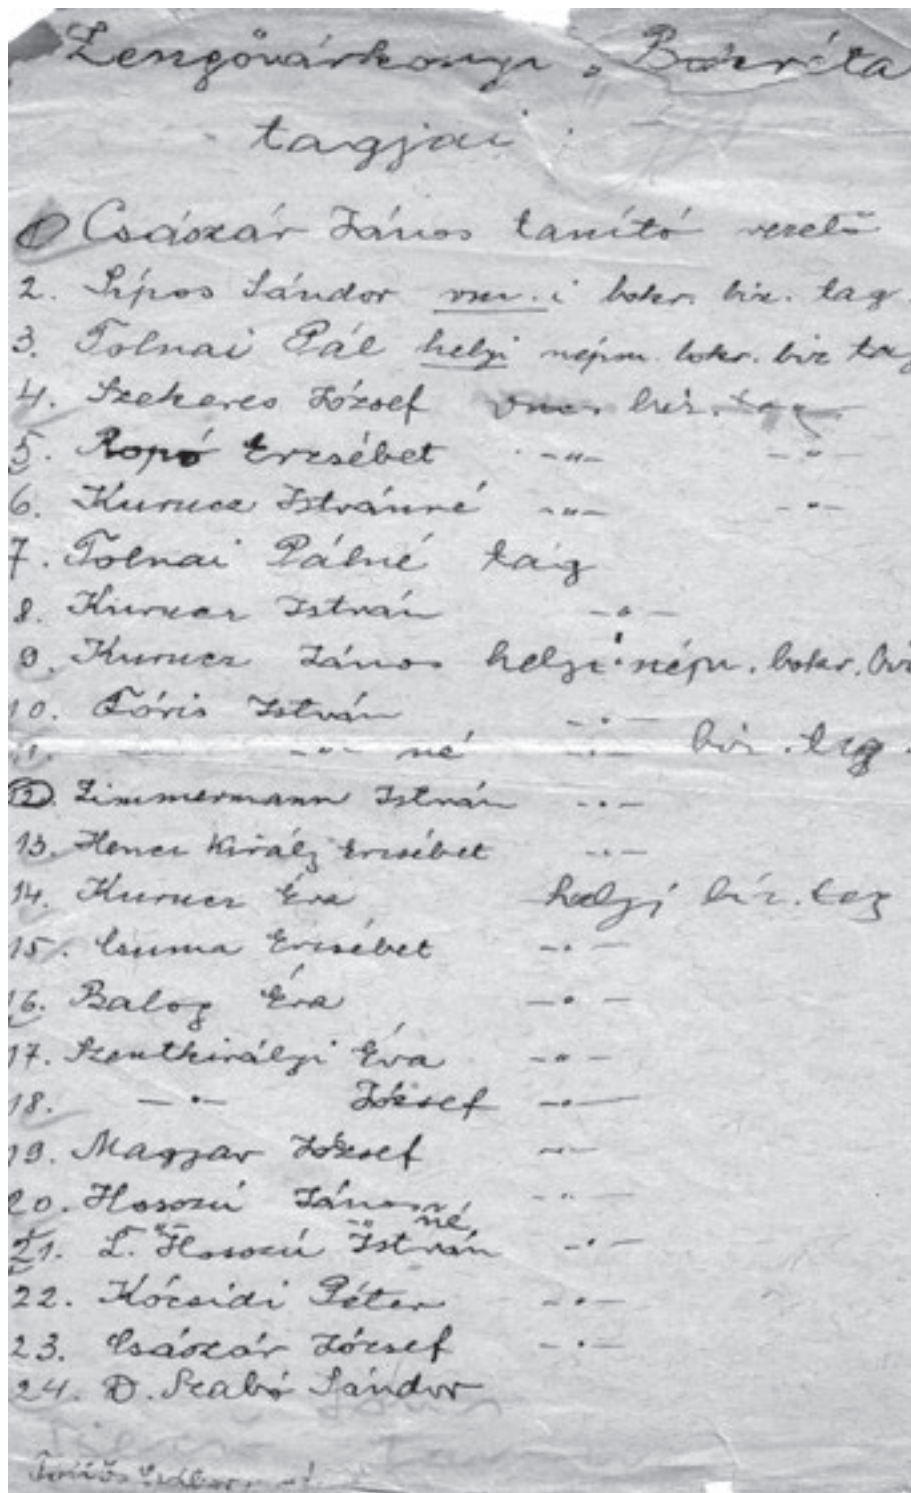 Zengővárkonyi „Bokréta
tagjai
1 Császár János tanító vezető
2. Sípos Sándor orsz. i bokr. biz. tag.
3. Tolnai Pál helyi népm. bokr. biz tag
4. Szekeres József biz. tag.
5. Ropó Erzsébet -„- -„-
6. Kurucz Istvánné -„- -„-
7. Tolnai Pálné tag
8. Kurucz István -„-
9. Kurucz János helyi népm. bokr. biz
10. Fóris István -„-
11. -„- né -„- biz. tag.
12. Zimmermann István -„-
13. Hencz Király Erzsébet -„-
14. Kurucz Éva helyi biz. tag
15. Csuma Erzsébet -„-
16. Balog Éva -„-
17. Szentkirályi Éva -„-
18. -„- József -„-
19. Magyar József -„-
20. Hosszú János né -„-
21. L. Hosszú István -„-
22. Kócsidi Péter -„-
23. Császár József -„-
24. D. Szabó Sándor